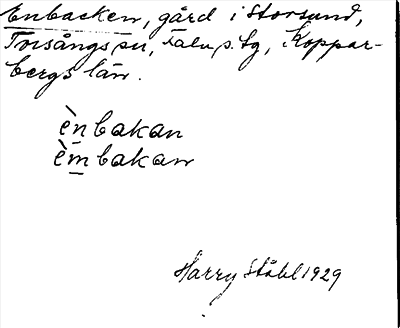 Enbacken, gård i Storsund,
Torsångs sn, Falu s. tg, Koppar-
bergs län.
ènbakan
èmbakan
Harry Ståhl 1929